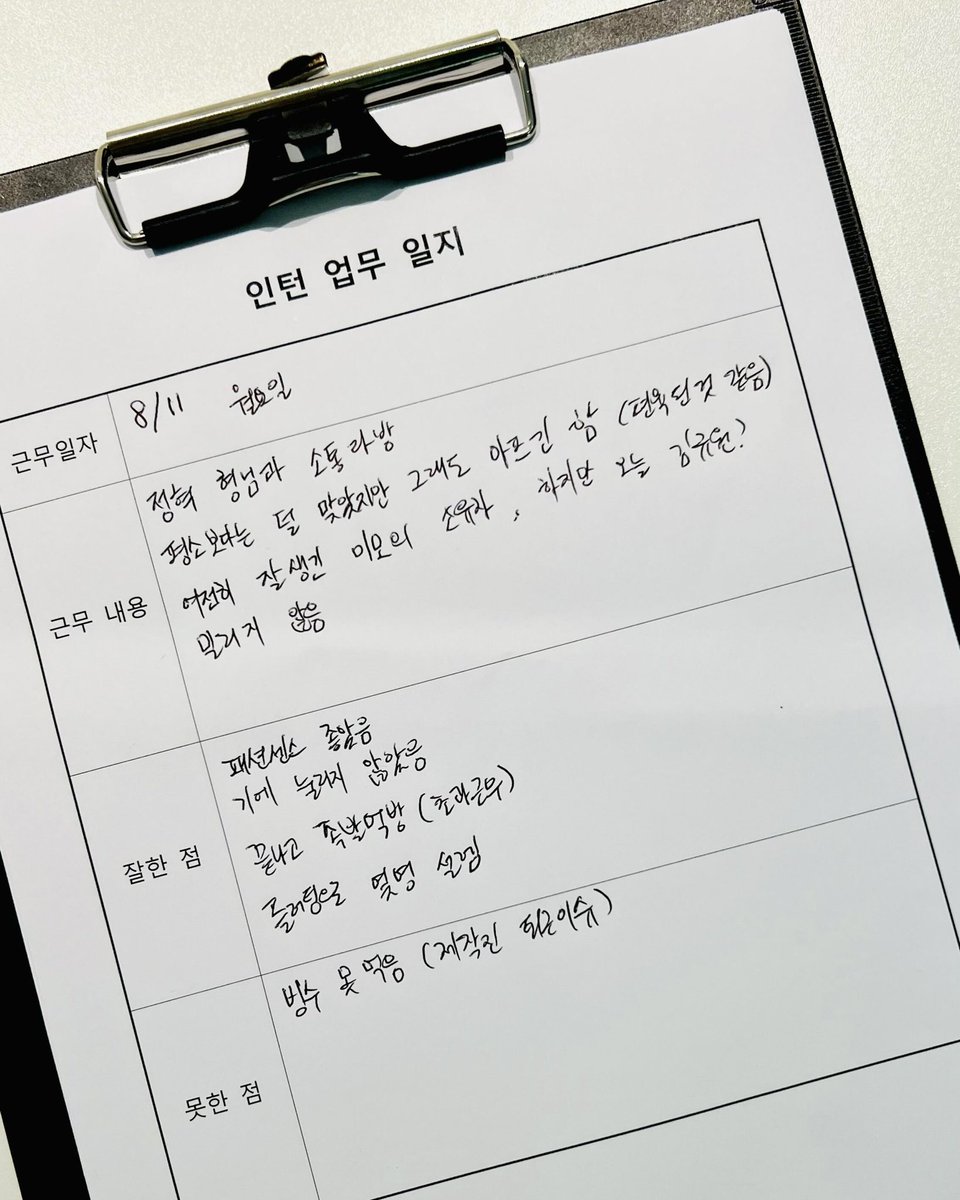 인턴 업무 일지
근무일자
8/11 월요일
근무 내용
정혁 형님과 소통라방
평소보다는 덜 맞았지만 그래도 아프긴 함 (편육된것 같음)
여전히 잘생긴 미모의 소유자, 하지만 오늘 김규원?
밀리지 않음
잘한 점
패션센스 좋았음
기에 눌리지 않았음
끝나고 족발먹방 (초과근무)
플러팅으로 몇명 설렘
못한 점
빙수 못먹음 (제작진 퇴근이슈)